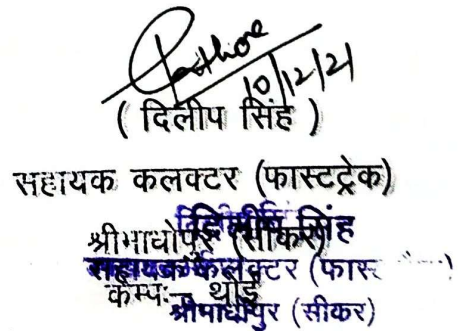 Rathore
10/12/21
( दिलीप सिंह )
सहायक कलक्टर (फास्टट्रेक)
श्रीमाधोपुर (सीकर)
कैम्पः– थोई
दिलीप सिंह
सहायक कलक्टर (फास्ट
श्रीमाधोपुर (सीकर)